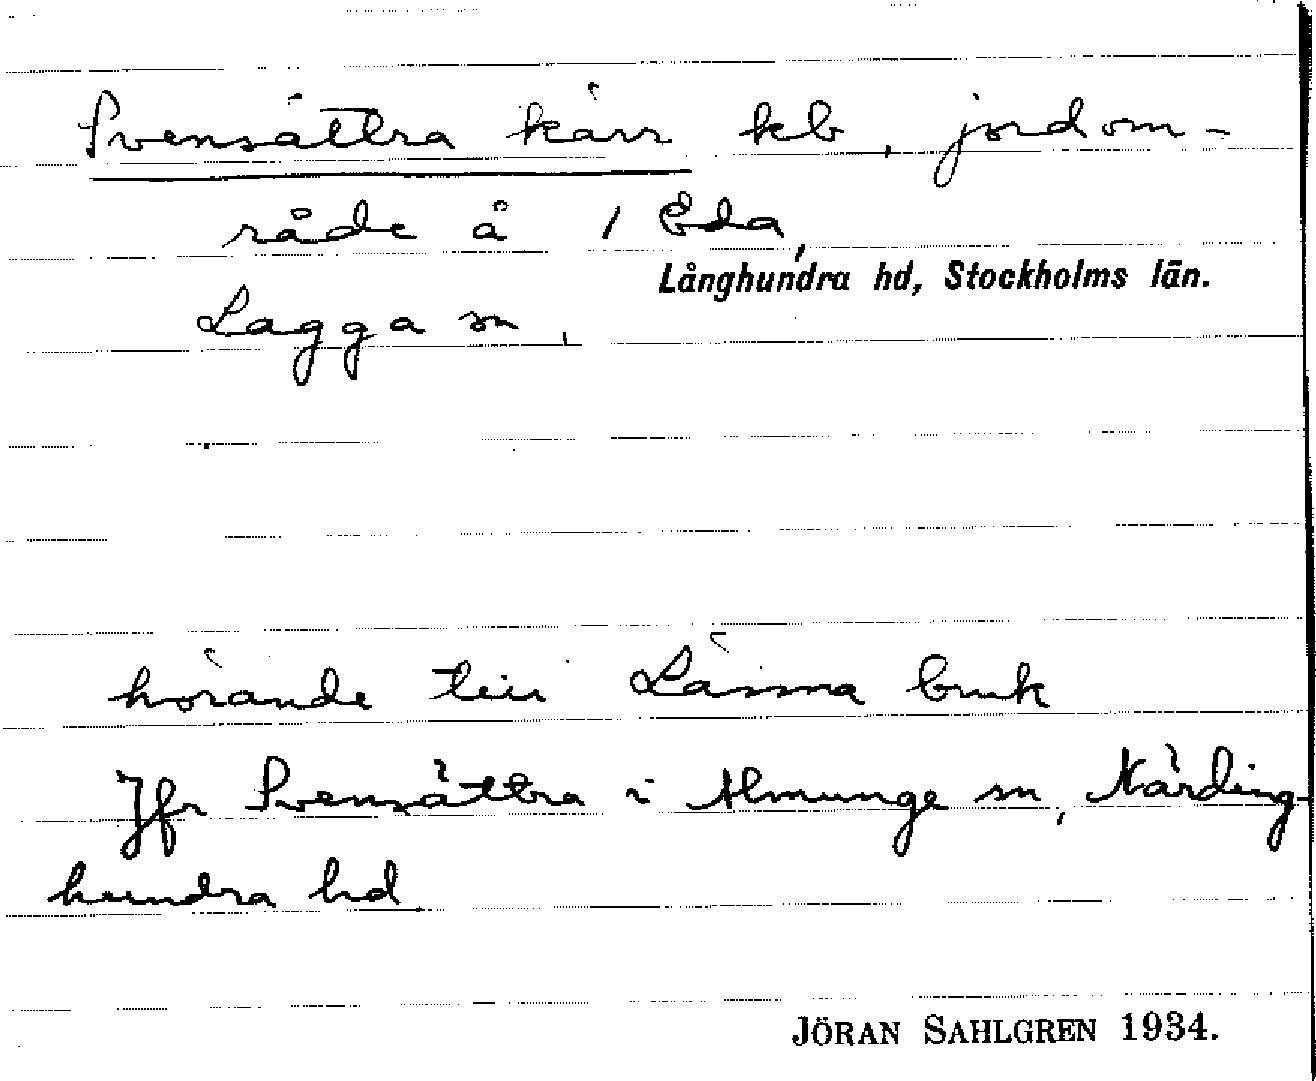 Svensättra kärr kb, jordom-
råde å 1 Eda,
Långhundra hd, Stockholms län.
Lagga sn,
hörande till Länna bruk
Jfr Svensättra i Almunge sn, Närding-
hundra hd
JÖRAN SAHLGREN 1934.